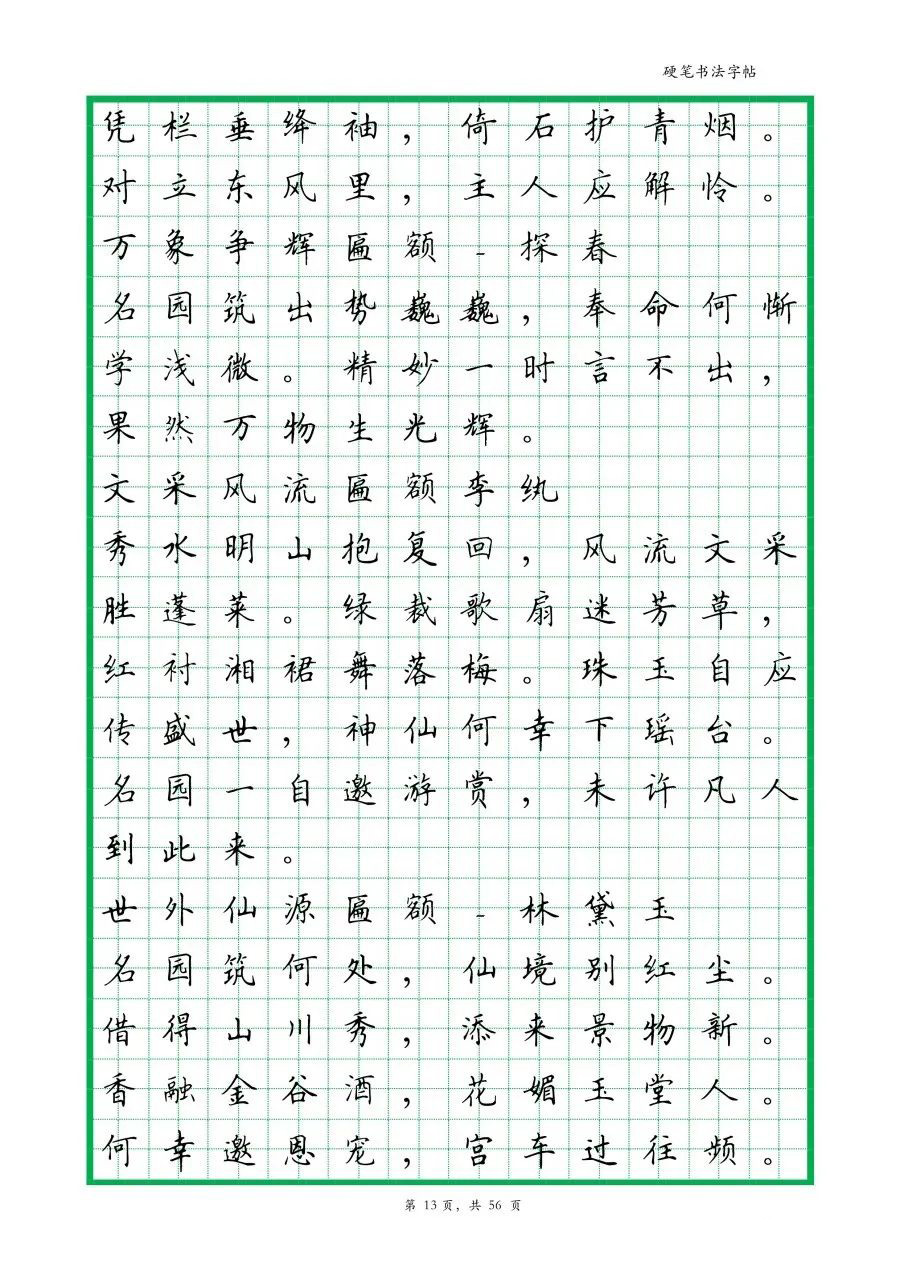 硬笔书法字帖
凭栏垂绛袖，倚石护青烟。
对立东风里，主人应解怜。
万象争辉匾额-探春
名园筑出势巍巍，奉命何惭
学浅微。精妙一时言不出，
果然万物生光辉。
文采风流匾额李纨
秀水明山抱复回，风流文采
胜蓬莱。绿裁歌扇迷芳草，
红衬湘裙舞落梅。珠玉自应
传盛世，神仙何幸下瑶台。
名园一自邀游赏，未许凡人
到此来。
世外仙源匾额-林黛玉
名园筑何处，仙境别红尘。
借得山川秀，添来景物新。
香融金谷酒，花媚玉堂人。
何幸邀恩宠，宫车过往频。
第 13 页，共 56 页